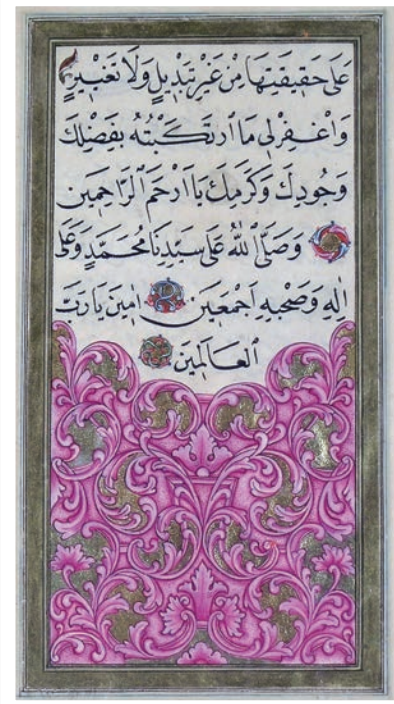 عَلَى حَقِيقَتِهَا مِنْ غَيْرِ تَبْدِيلٍ وَلَا تَغْيِيرٍ
وَاغْفِرْ لِي مَا ارْتَكَبْتُهُ بِفَضْلِكَ
وَجُودِكَ وَكَرَمِكَ يَا اَرْحَمَ الرَّاحِمِينَ
وَصَلَّى اللهُ عَلَى سَيِّدِنَا مُحَمَّدٍ وَعَلَى
اٰلِهِ وَصَحْبِهِ اَجْمَعِينَ اٰمِينَ يَا رَبَّ
الْعَالَمِينَ